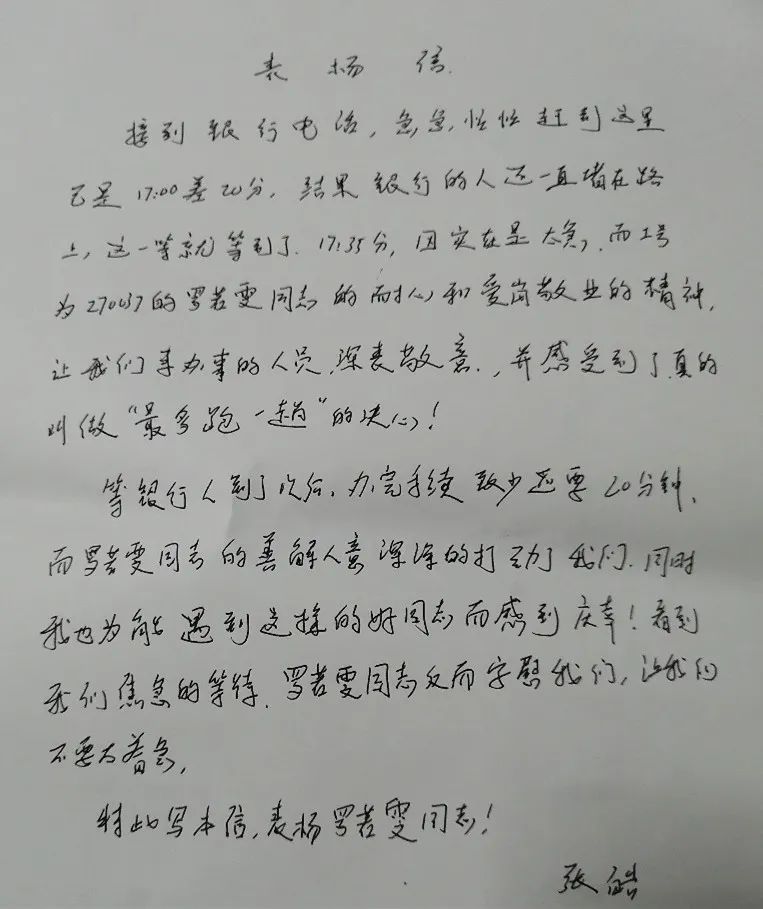 表扬信
接到银行电话,急急,忙忙赶到这里
已是17:00差20分,结果银行的人还一直堵在路
上,这一等就等到了.17:35分,因实在是太急,而工号
为270437的罗若雯同志的耐心和爱岗敬业的精神,
让我们来办事的人员,深表敬意.,并感受到了真的
叫做“最多跑一趟”的决心!
等银行人到了以后,办完手续致少还要20分钟,
而罗若雯同志的善解人意深深的打动了我们.同时
我也为能遇到这样的好同志而感到庆幸!看到
我们焦急的等待.罗若雯同志反而安慰我们,让我们
不要太着急,
特此写本信,表扬罗若雯同志!
张皓